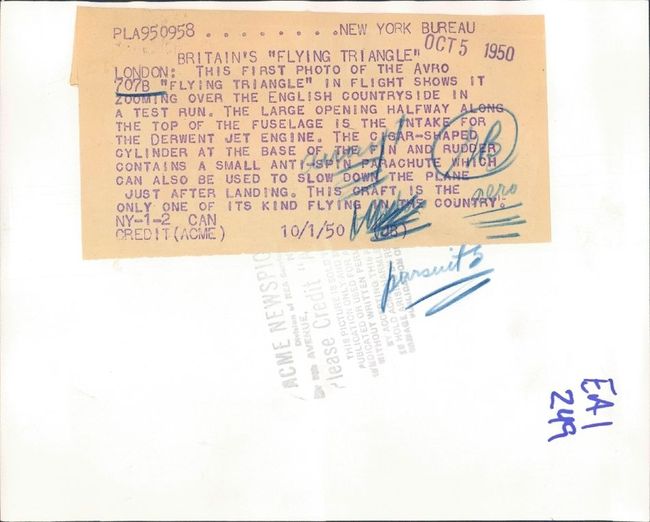 PLA950958 . . . . . . . . .NEW YORK BUREAU
OCT 5 1950
BRITAIN'S "FLYING TRIANGLE"
LONDON: THIS FIRST PHOTO OF THE AVRO
707B "FLYING TRIANGLE" IN FLIGHT SHOWS IT
ZOOMING OVER THE ENGLISH COUNTRYSIDE IN
A TEST RUN. THE LARGE OPENING HALFWAY ALONG
THE TOP OF THE FUSELAGE IS THE INTAKE FOR
THE DERWENT JET ENGINE. THE CIGAR-SHAPED
CYLINDER AT THE BASE OF THE FIN AND RUDDER
CONTAINS A SMALL ANTI-SPIN PARACHUTE WHICH
CAN ALSO BE USED TO SLOW DOWN THE PLANE
JUST AFTER LANDING. THIS CRAFT IS THE
ONLY ONE OF ITS KIND FLYING IN THE COUNTRY.
NY-1-2 CAN
CREDIT(ACME) 10/1/50 (JB)
aero
pursuits
ACME NEWSPIC
Please Credit "A
THIS PICTURE IS SOLD
PUBLICATION OR USED
WITHOUT WRITTEN
EA1
249